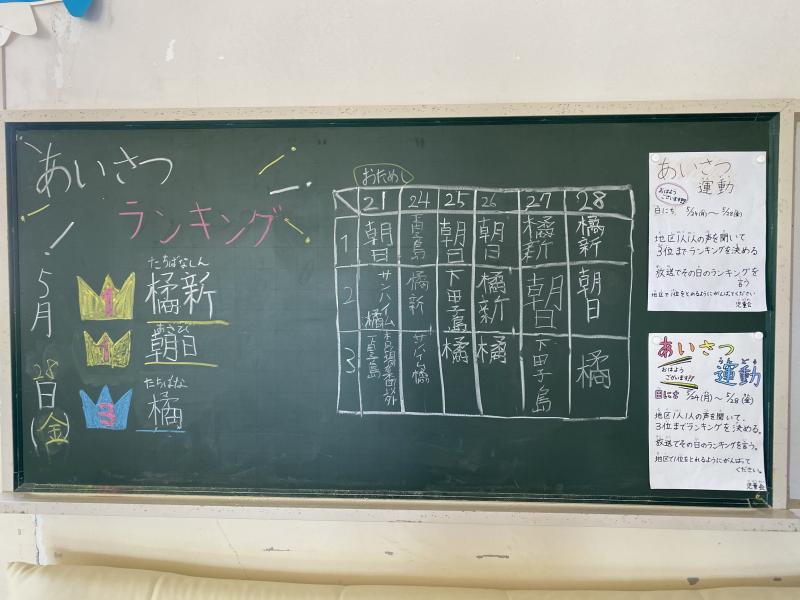 あいさつ
ランキング
5月
28日
(金)
1
たちばなしん
橘新
1
あさひ
朝日
3
たちばな
橘
おためし
21 24 25 26 27 28
1 朝日 朝日 朝日 橘新 橘新
2 サンハイム橘 橘新 下田子島 橘新 朝日 朝日
3 サンハイム橘 橘 橘 下田子島 橘
あいさつ
運動
おはようございます!!!
日にち 5/24(月)〜5/28(金)
地区1人1人の声を聞いて
3位までランキングを決める
放送でその日のランキングを
言う
地区で1位をとれるようにがんばってください
児童会
あいさつ
うんどう
運動
おはよう
ございます!!!
日にち 5/24(月)〜5/28(金)
地区1人1人の声を聞いて、
3位までランキングを決める。
放送でその日のランキングを言う。
地区で1位をとれるようにがんばって
ください。
児童会